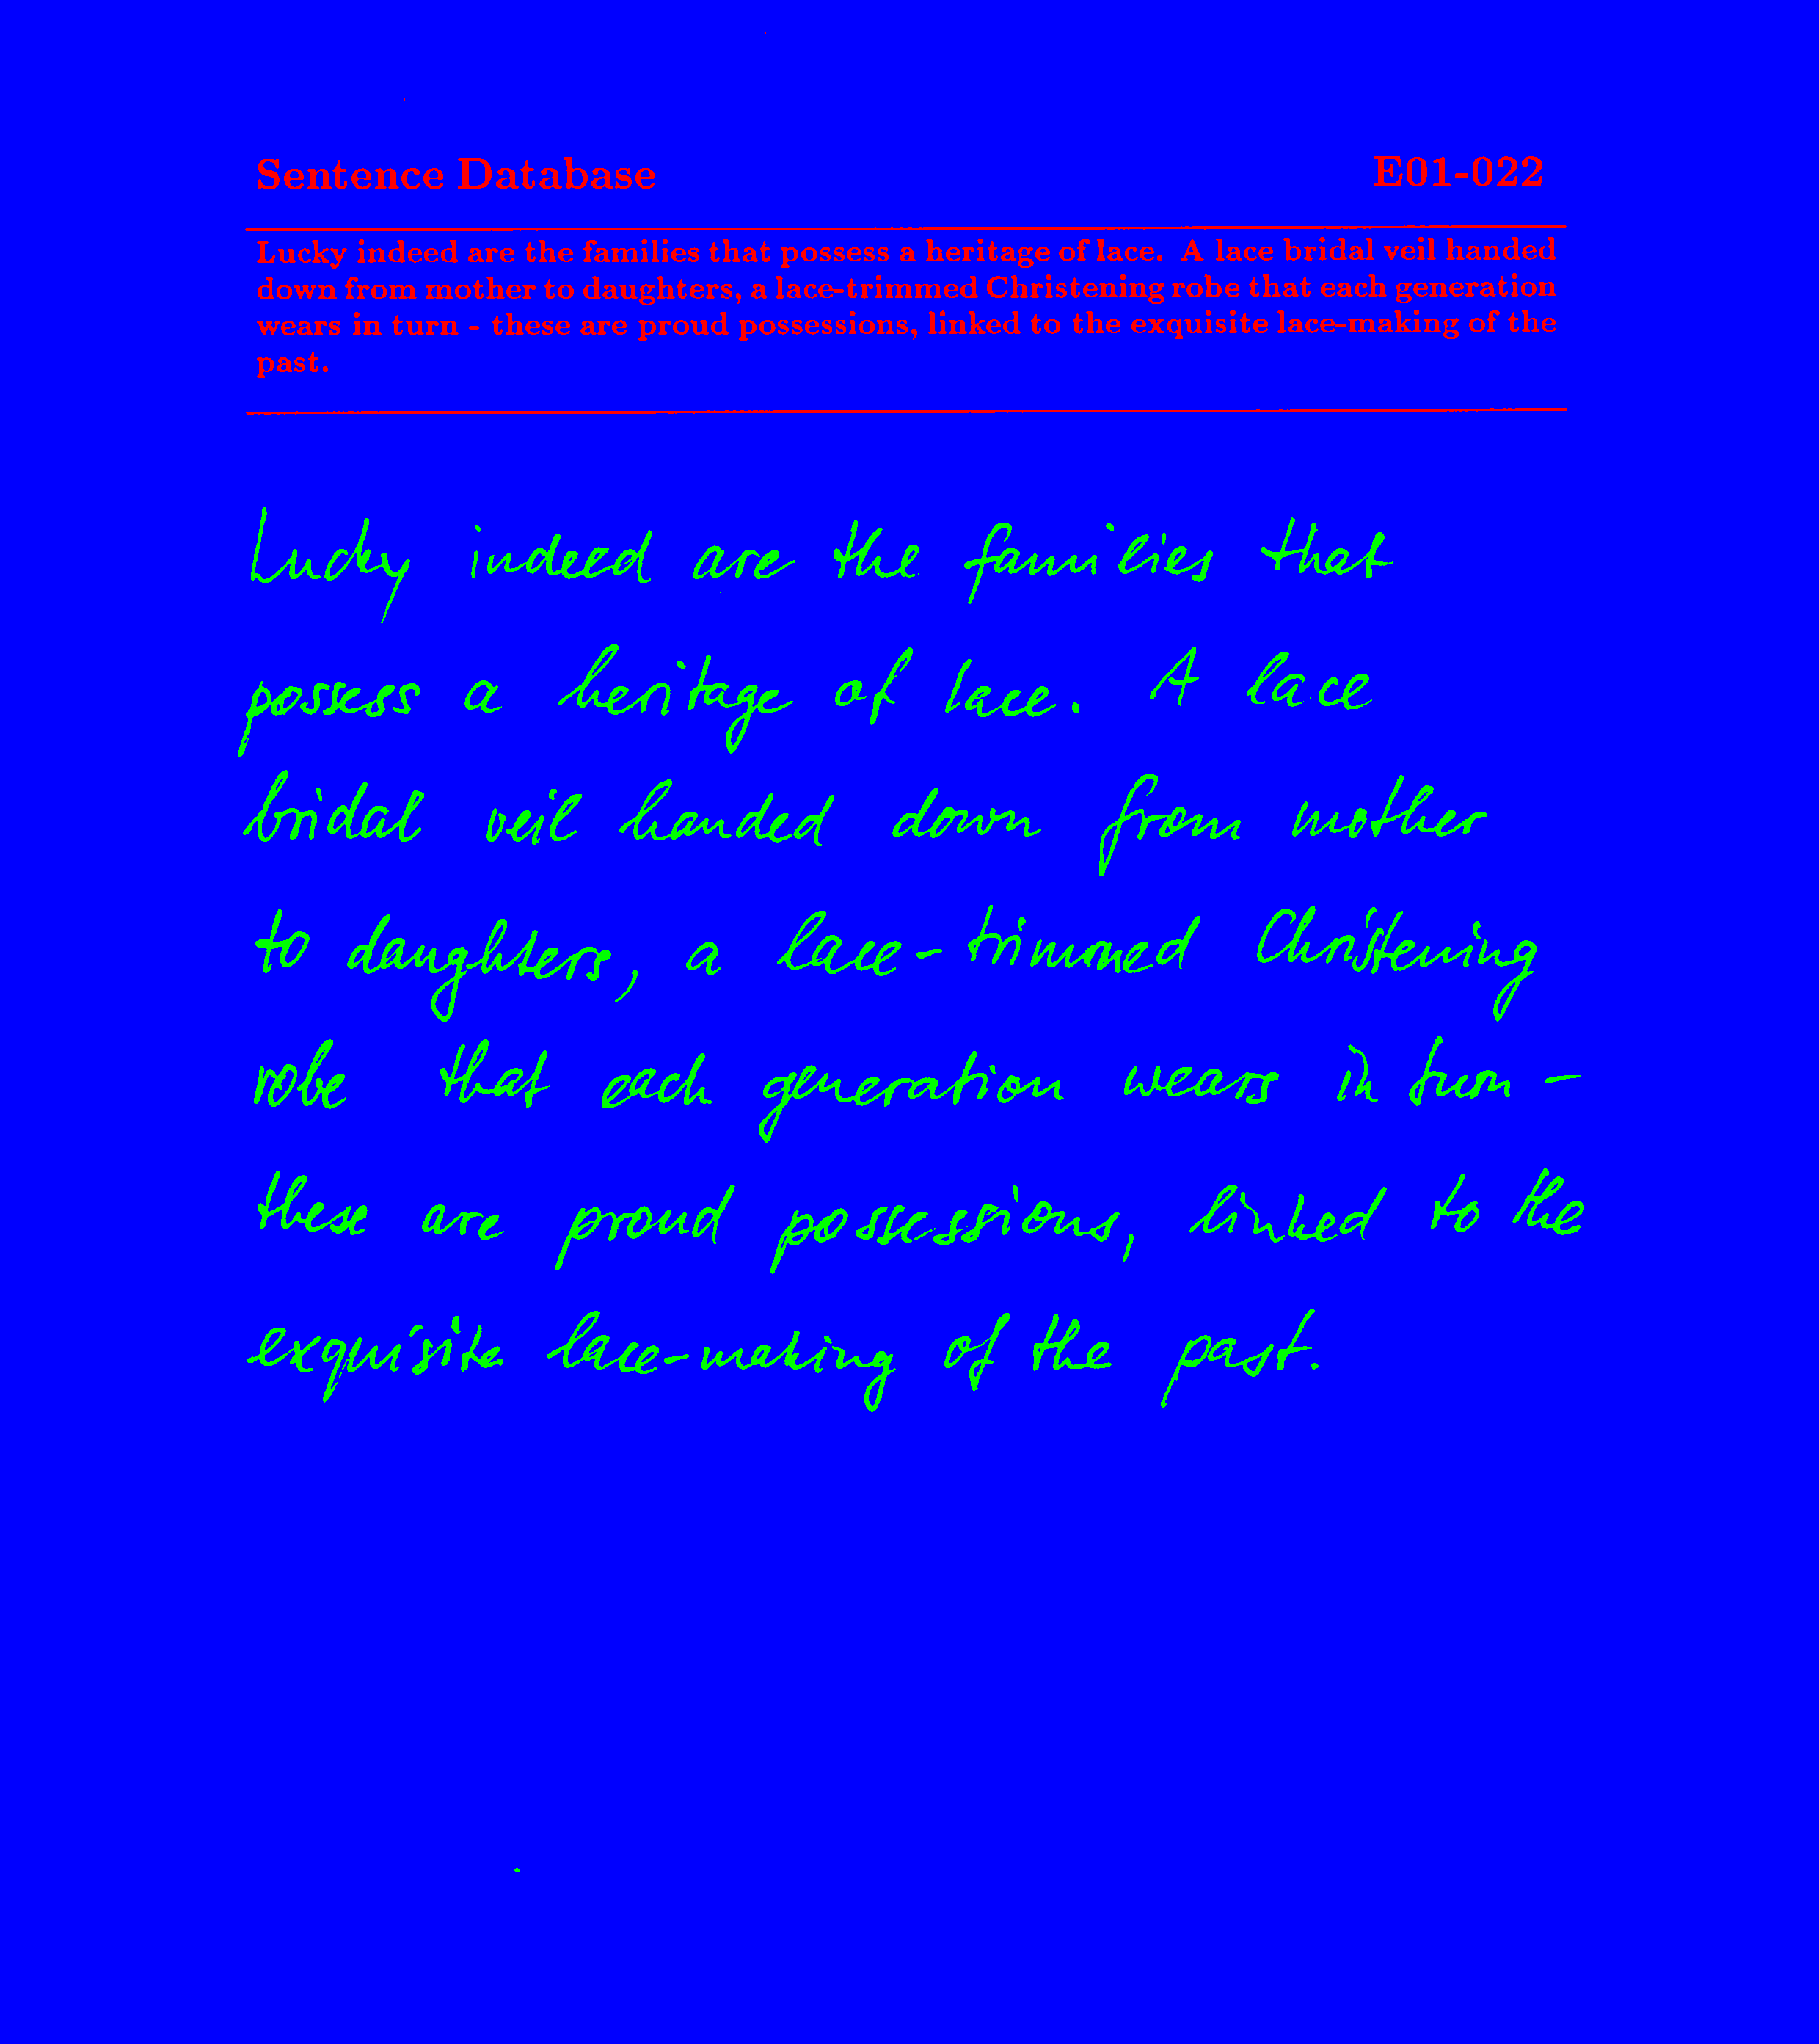 Sentence Database E01-022
Lucky indeed are the families that possess a heritage of lace. A lace bridal veil handed
down from mother to daughters, a lace-trimmed Christening robe that each generation
wears in turn - these are proud possessions, linked to the exquisite lace-making of the
past.
Lucky indeed are the families that
possess a heritage of lace. A lace
bridal veil handed down from mother
to daughters, a lace-trimmed Christening
robe that each generation wears in turn -
these are proud possessions, linked to the
exquisite lace-making of the past.